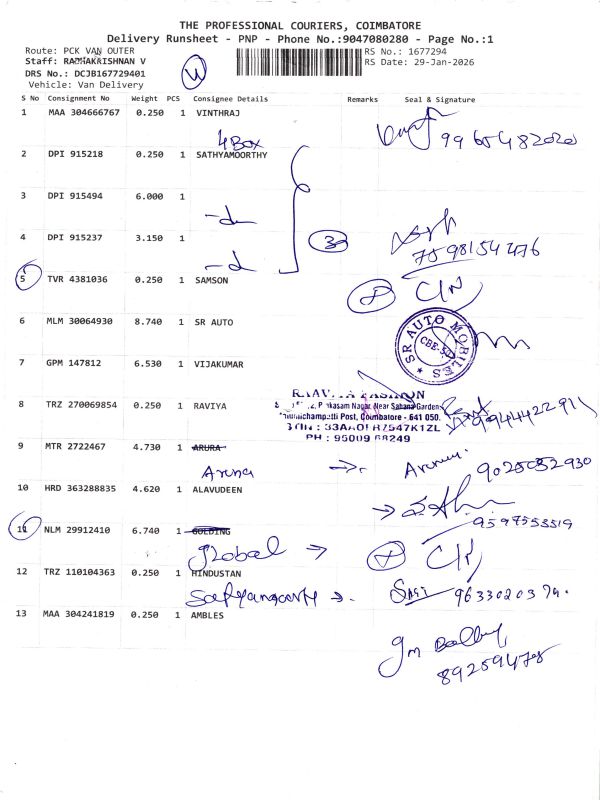 THE PROFESSIONAL COURIERS, COIMBATORE
Delivery Runsheet - PNP - Phone No.:9047080280 - Page No.:1
Route: PCK VAN OUTER
RS No.: 1677294
Staff: RADHAKRISHNAN V
RS Date: 29-Jan-2026
DRS No.: DCJB167729401
Vehicle: Van Delivery
S No Consignment No Weight PCS Consignee Details Remarks Seal & Signature
1 MAA 304666767 0.250 1 VINTHRAJ
9965482020
4 Box
2 DPI 915218 0.250 1 SATHYAMOORTHY
3 DPI 915494 6.000 1
4 DPI 915237 3.150 1
7598154276
5 TVR 4381036 0.250 1 SAMSON
6 MLM 30064930 8.740 1 SR AUTO
SR AUTO MOBILES
7 GPM 147812 6.530 1 VIJAKUMAR
8 TRZ 270069854 0.250 1 RAVIYA
Near Sahana Garden
Post, Coimbatore - 641 050.
PH : 95009 68249
9 MTR 2722467 4.730 1 ARURA
Aruna
9025052930
10 HRD 363288835 4.620 1 ALAVUDEEN
9597553519
11 NLM 29912410 6.740 1 GOLDING
global
12 TRZ 110104363 0.250 1 HINDUSTAN
13 MAA 304241819 0.250 1 AMBLES
89259478